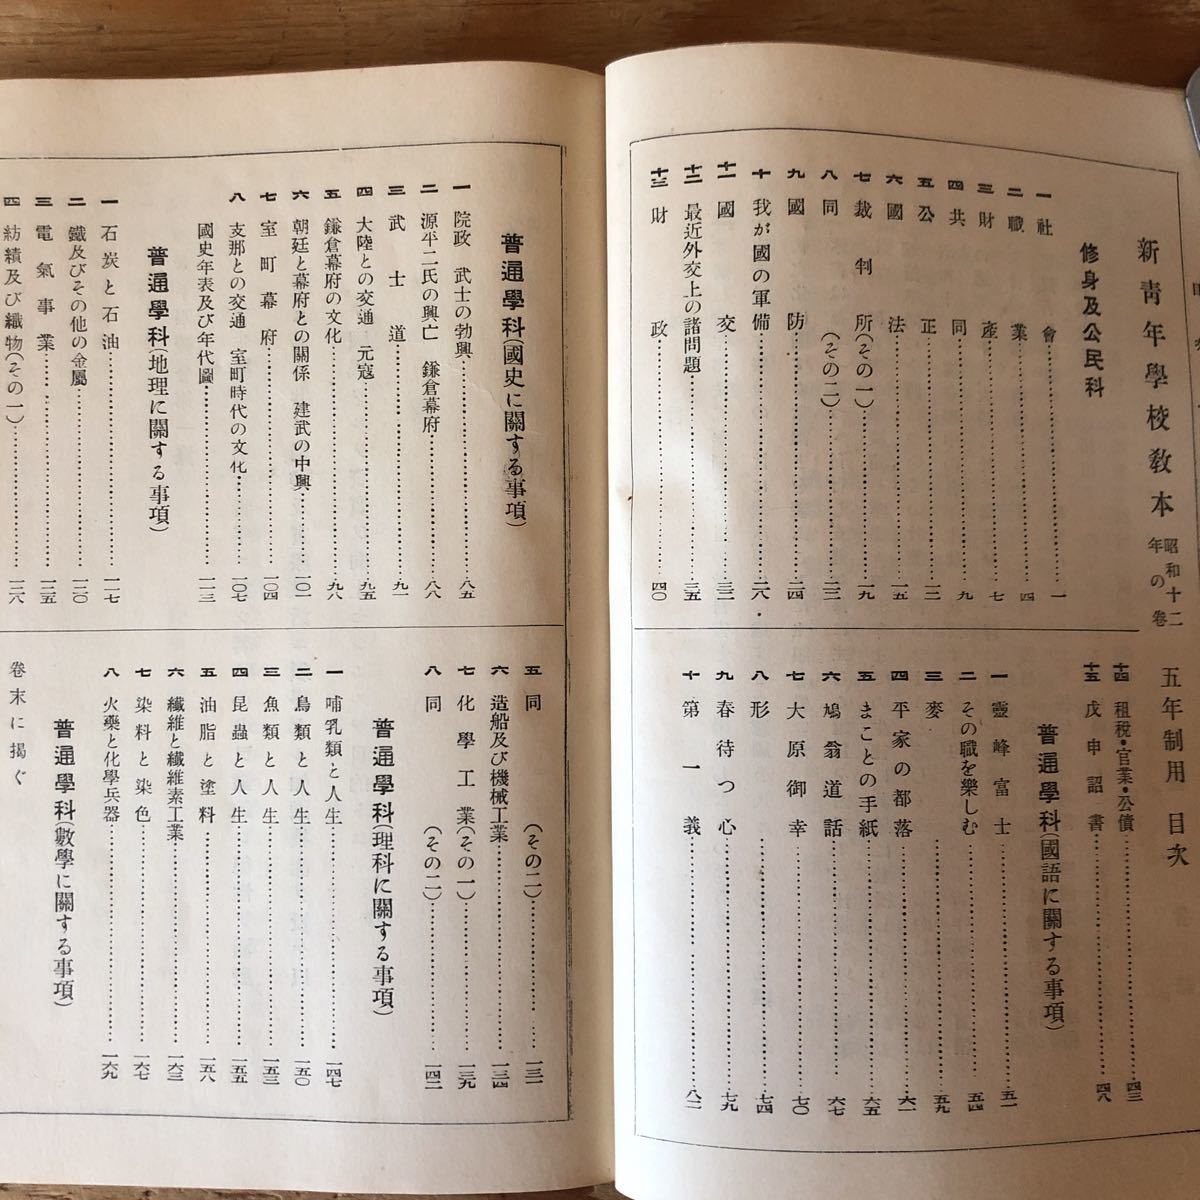 新青年學校教本 昭和十二年の卷 五年制用 目次
修身及公民科
一 社會 一
二 職業 四
三 財產 七
四 共同 九
五 公正 一二
六 國法 一五
七 裁判所(その一) 一九
八 同(その二) 二二
九 國防 二四
十 我が國の軍備 二八
十一 國交 三二
十二 最近外交上の諸問題 三五
十三 財政 四〇
十四 租稅・官業・公債 四三
十五 戊申詔書 四八
普通學科(國語に關する事項)
一 靈峰富士 五一
二 その職を樂しむ 五四
三 麥 五九
四 平家の都落 六一
五 まことの手紙 六五
六 鳩翁道話 六七
七 大原御幸 七〇
八 形 七四
九 春待つ心 七九
十 第一義 八二
普通學科(國史に關する事項)
一 院政 武士の勃興 八五
二 源平二氏の興亡 鎌倉幕府 八八
三 武士道 九一
四 大陸との交通 元寇 九五
五 鎌倉幕府の文化 九八
六 朝廷と幕府との關係 建武の中興 一〇一
七 室町幕府 一〇四
八 支那との交通 室町時代の文化 一〇七
國史年表及び年代圖 一一三
普通學科(地理に關する事項)
一 石炭と石油 一一七
二 鐵及びその他の金屬 一二〇
三 電氣事業 一二五
四 紡績及び織物(その一) 一二八
五 同(その二) 一三一
六 造船及び機械工業 一三四
七 化學工業(その一) 一三九
八 同(その二) 一四二
普通學科(理科に關する事項)
一 哺乳類と人生 一四七
二 鳥類と人生 一五〇
三 魚類と人生 一五三
四 昆蟲と人生 一五五
五 油脂と塗料 一五八
六 纖維と纖維素工業 一六三
七 染料と染色 一六七
八 火藥と化學兵器 一六九
普通學科(數學に關する事項)
卷末に揭ぐ